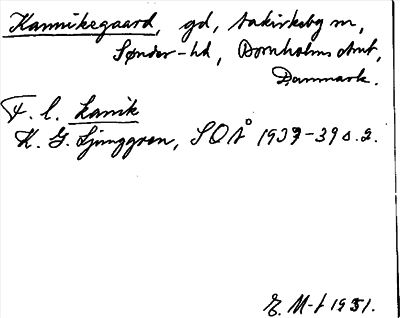 Kannikegaard, gd, Aakirkeby sn,
Sønder-hd, Bornholms Amt,
Danmark.
F. l. kanik
K. G. Ljunggren, SOÅ 1937-39 s. 2.
E. M-t 1951.